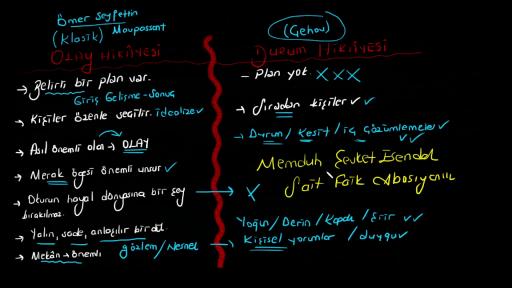 Ömer Seyfettin
(Klasik) Maupassant
OLAY HİKAYESİ
→ Belirli bir plan var.
Giriş Gelişme-Sonuç
→ Kişiler özenle seçilir. idealize ✓
→ Asıl önemli olan → OLAY
→ Merak ögesi önemli unsur ✓
→ Okurun hayal dünyasına bir şey
bırakılmaz.
→ Yalın, sade, anlaşılır bir dil
→ Mekân → önemli gözlem/Nesnel
(Çehov)
DURUM HİKAYESİ
- Plan yok. X X X
→ Sıradan kişiler ✓ ✓
→ Durum / Kesit / iç çözümlemeler ✓ ✓
Memduh Şevket Esendal
Sait Faik Abasıyanık
→ X
Yoğun / Derin / Kapalı / Şiir ✓ ✓
→ Kişisel yorumlar / duygu ✓